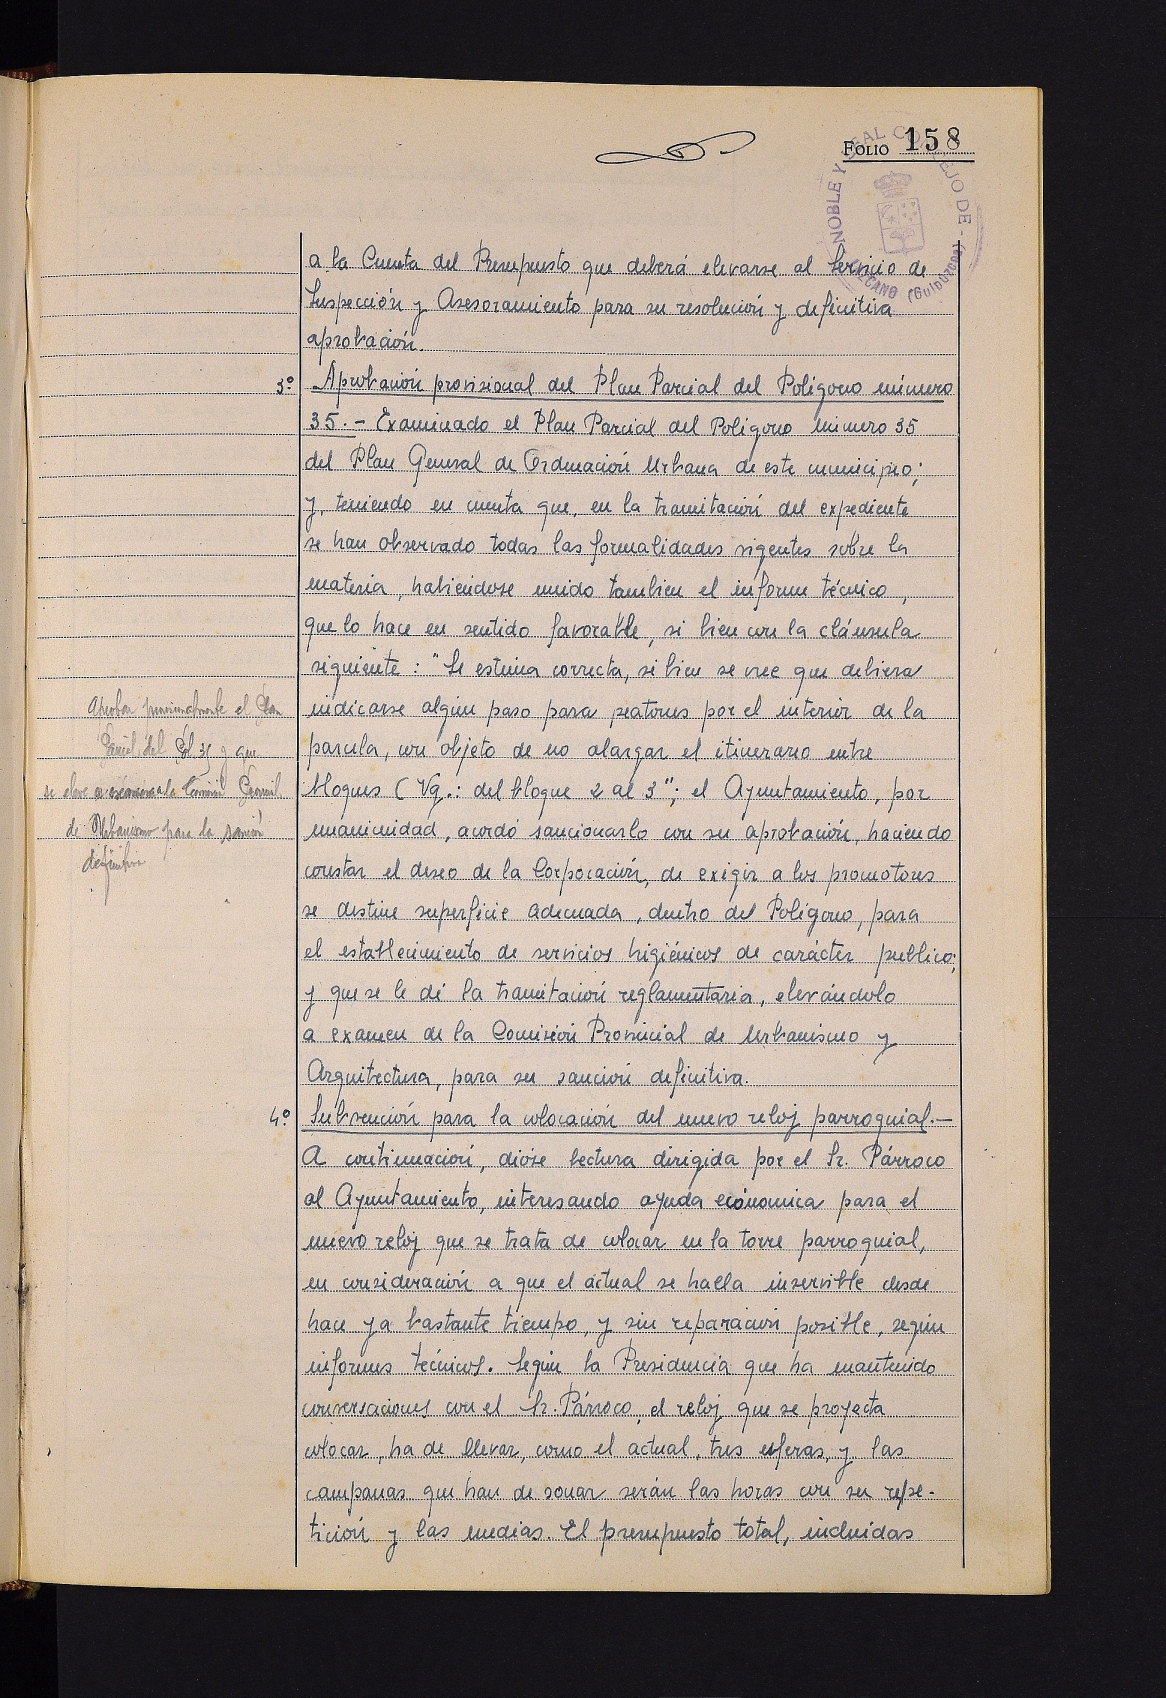 FOLIO 158
NOBLE Y LEAL CONCEJO DE - LAZCANO (Guipúzcoa)
a la Cuenta del Presupuesto que deberá elevarse al Servicio de
Inspección y Asesoramiento para su resolución y definitiva
aprobación.
3º Aprobación provisional del Plan Parcial del Polígono número
35. - Examinado el Plan Parcial del Polígono número 35
del Plan General de Ordenación Urbana de este municipio;
y, teniendo en cuenta que, en la tramitación del expediente
se han observado todas las formalidades vigentes sobre la
materia, habiéndose unido tambien el informe técnico,
que lo hace en sentido favorable, si bien con la cláusula
siguiente: "Se estima correcta, si bien se cree que debiera
indicarse algún paso para peatones por el interior de la
parcela, con objeto de no alargar el itinerario entre
bloques (Vg.: del bloque 2 al 3"; el Ayuntamiento, por
unanimidad, acordó sancionarlo con su aprobación, haciendo
constar el deseo de la Corporación, de exigir a los promotores
se destine superficie adecuada, dentro del Polígono, para
el establecimiento de servicios higiénicos de carácter publico;
y que se le dé la tramitación reglamentaria, elevándolo
a examen de la Comisión Provincial de Urbanismo y
Arquitectura, para su sanción definitiva.
Aprobar provisionalmente el Plan
Parcial del Pol. 35 y que
se eleve a la Comisión Provincial
de Urbanismo para la sanción
definitiva
4º Subvención para la colocación del nuevo reloj parroquial.-
A continuación, dióse lectura dirigida por el Sr. Párroco
al Ayuntamiento, interesando ayuda económica para el
nuevo reloj que se trata de colocar en la torre parroquial,
en consideración a que el actual se halla inservible desde
hace ya bastante tiempo, y sin reparación posible, según
informes técnicos. Según la Presidencia que ha mantenido
conversaciones con el Sr. Párroco, el reloj que se proyecta
colocar, ha de llevar, como el actual, tres esferas, y las
campanas que han de sonar serán las horas con su repe-
tición y las medias. El presupuesto total, incluidas